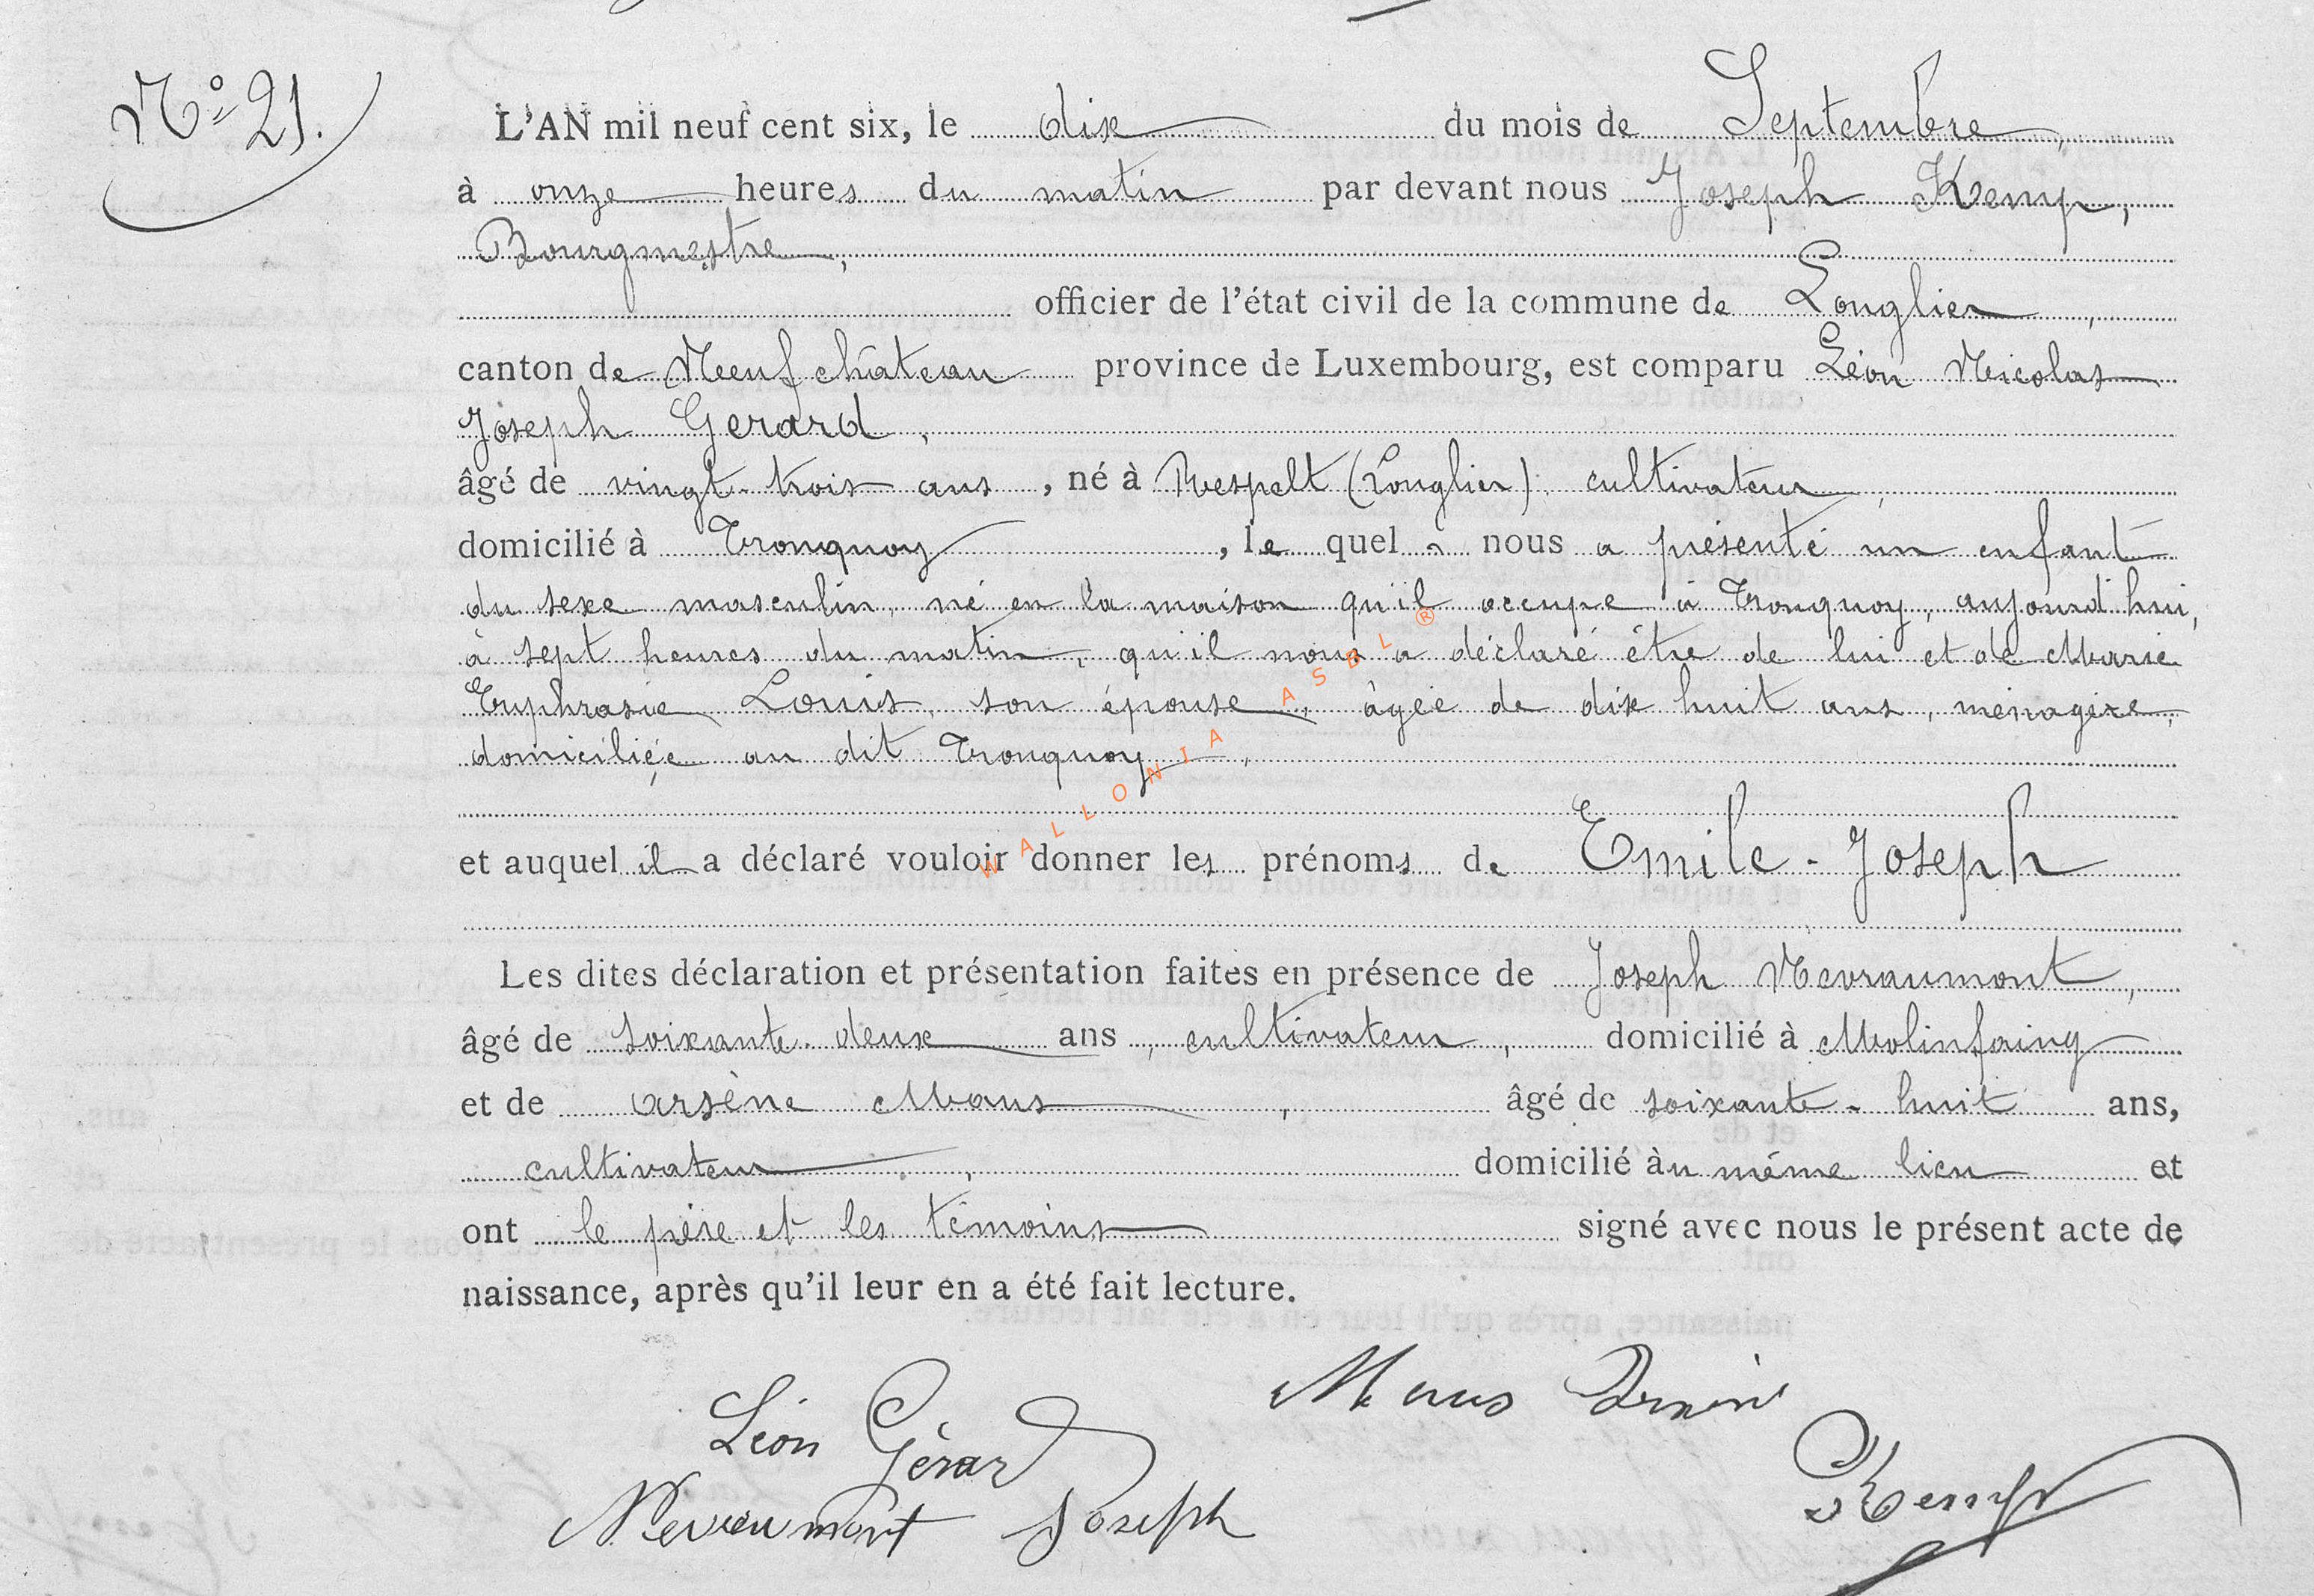 N° 21.
L'AN mil neuf cent six, le dix du mois de Septembre,
à onze heures du matin par devant nous Joseph Kemp,
Bourgmestre,
officier de l'état civil de la commune de Longlier,
canton de Neufchâteau province de Luxembourg, est comparu Léon Nicolas
Joseph Gerard,
âgé de vingt-trois ans, né à Respelt (Longlier), cultivateur,
domicilié à Tronquoy, le quel nous a présenté un enfant
du sexe masculin, né en la maison qu'il occupe à Tronquoy, aujourd'hui,
à sept heures du matin, qu'il nous a déclaré être de lui et de Marie
Euphrasie Louis, son épouse, âgée de dix huit ans, ménagère,
domiciliée au dit Tronquoy,
et auquel il a déclaré vouloir donner les prénoms de Emile-Joseph
Les dites déclaration et présentation faites en présence de Joseph Nevraumont,
âgé de soixante-deux ans, cultivateur, domicilié à Molinfaing
et de Arsène Maus, âgé de soixante-huit ans,
cultivateur, domicilié àu même lieu et
ont le père et les témoins signé avec nous le présent acte de
naissance, après qu'il leur en a été fait lecture.
Maus
Léon Gérard
Kemp
Nevraumont Joseph
WALLONIA ASBL ®